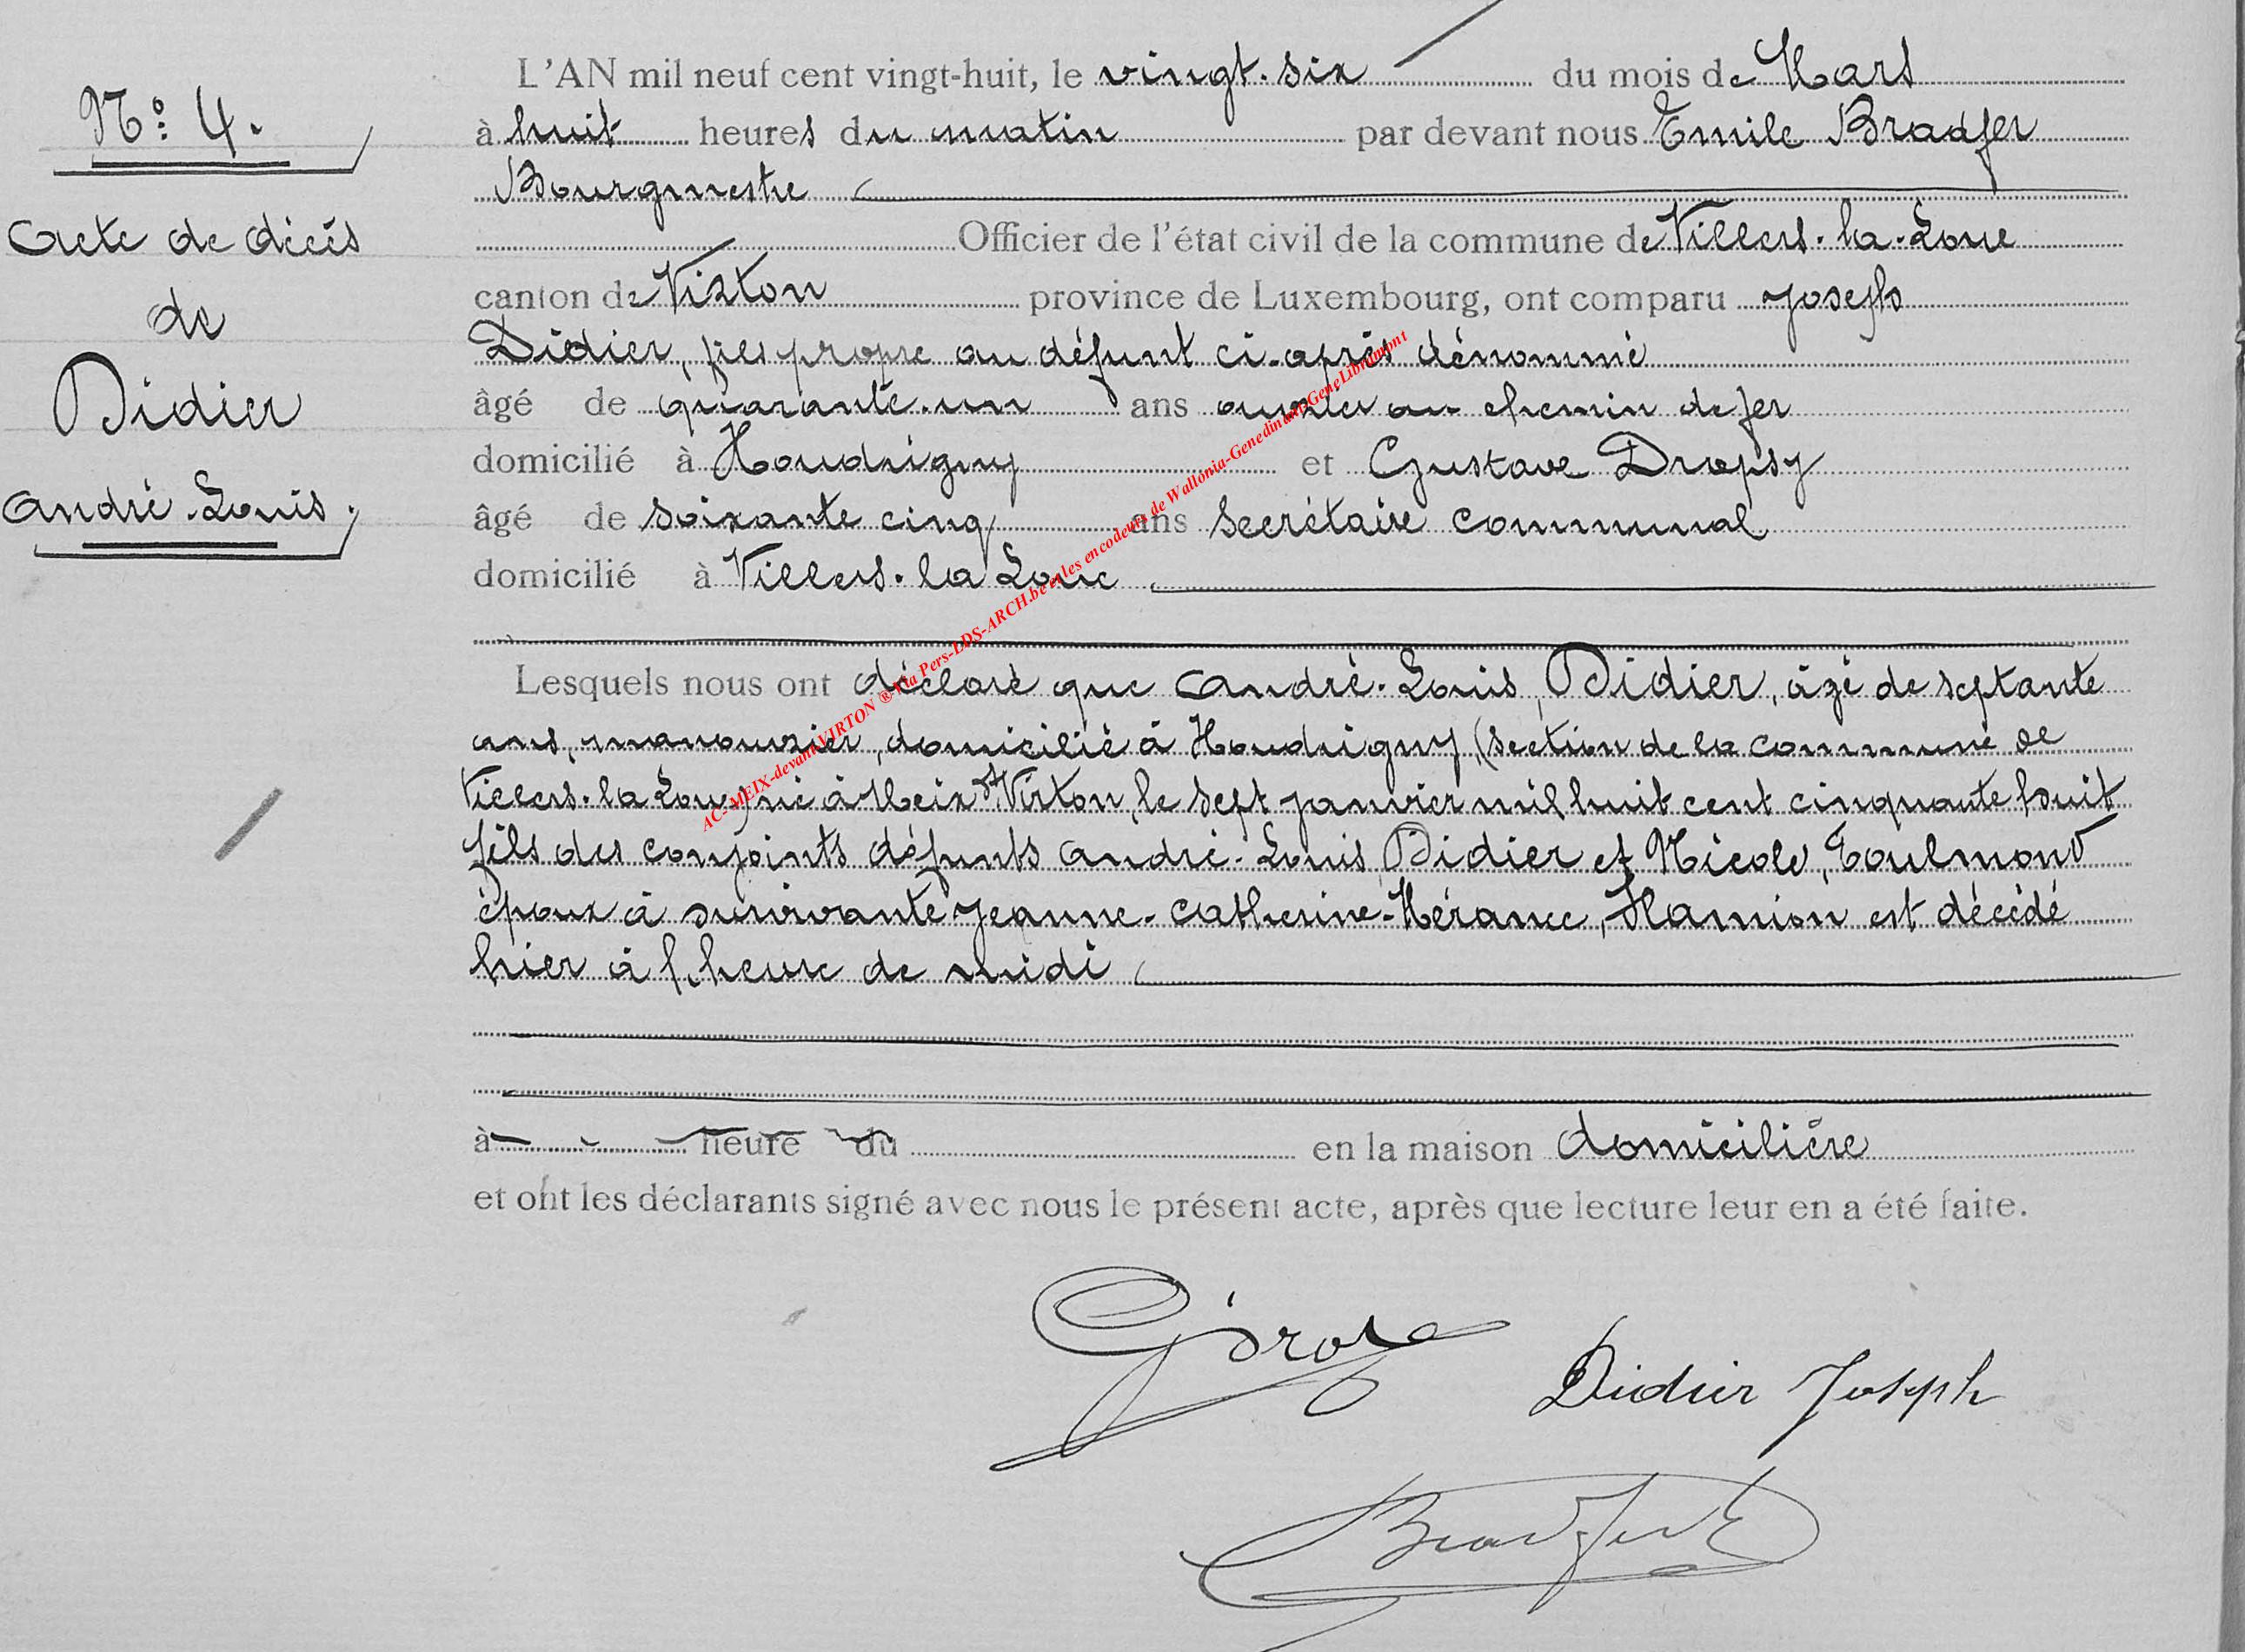 N° 4.
Acte de décès
de
Didier
André-Louis.
L'AN mil neuf cent vingt-huit, le vingt-six du mois de Mars
à huit heures du matin par devant nous Emile Bradfer
Bourgmestre
Officier de l'état civil de la commune de Villers-la-Loue
canton de Virton province de Luxembourg, ont comparu Joseph
Didier, fils propre au défunt ci-après dénommé
âgé de quarante-un ans ouvrier au chemin de fer
domicilié à Houdrigny et Gustave Dropsy
âgé de soixante cinq ans secrétaire communal
domicilié à Villers-la Loue
Lesquels nous ont déclaré que André-Louis, Didier, âgé de septante
ans, manouvrier, domicilié à Houdrigny, (section de la commune de
Villers-la Loue) né à Meix dt Virton, le sept janvier mil huit cent cinquante huit
fils des conjoints défunts André-Louis Didier et Nicole, Goulmond
époux à survivante Jeanne-Catherine-Mérance, Hamion est décédé
hier à l'heure de midi
à heure du en la maison domicilière
et ont les déclarants signé avec nous le présent acte, après que lecture leur en a été faite.
Didier Joseph
Bradfer E
AC-MEIX-devant-VIRTON ® Via Pers-LDS-ARCH.be et les encodeurs de Wallonia-Genedinant-GeneLibramont